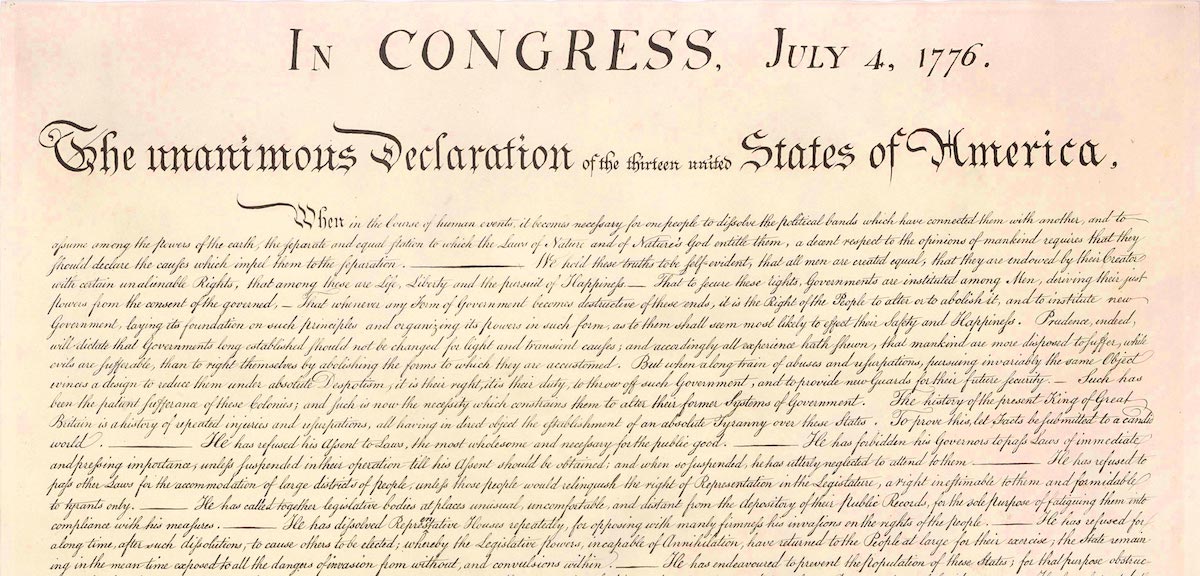 In CONGRESS, July 4, 1776.
The unanimous Declaration of the thirteen united States of America,
When in the Course of human events, it becomes necessary for one people to dissolve the political bands which have connected them with another, and to
assume among the powers of the earth, the separate and equal station to which the Laws of Nature and of Nature's God entitle them, a decent respect to the opinions of mankind requires that they
should declare the causes which impel them to the separation. ——— We hold these truths to be self-evident, that all men are created equal, that they are endowed by their Creator
with certain unalienable Rights, that among these are Life, Liberty and the pursuit of Happiness.— That to secure these rights, Governments are instituted among Men, deriving their just
powers from the consent of the governed, — That whenever any Form of Government becomes destructive of these ends, it is the Right of the People to alter or to abolish it, and to institute new
Government, laying its foundation on such principles and organizing its powers in such form, as to them shall seem most likely to effect their Safety and Happiness. Prudence, indeed,
will dictate that Governments long established should not be changed for light and transient causes; and accordingly all experience hath shewn, that mankind are more disposed to suffer, while
evils are sufferable, than to right themselves by abolishing the forms to which they are accustomed. But when a long train of abuses and usurpations, pursuing invariably the same Object
evinces a design to reduce them under absolute Despotism, it is their right, it is their duty, to throw off such Government, and to provide new Guards for their future security. — Such has
been the patient sufferance of these Colonies; and such is now the necessity which constrains them to alter their former Systems of Government. The history of the present King of Great
Britain is a history of repeated injuries and usurpations, all having in direct object the establishment of an absolute Tyranny over these States. To prove this, let Facts be submitted to a candid
world. ——— He has refused his Assent to Laws, the most wholesome and necessary for the public good. ——— He has forbidden his Governors to pass Laws of immediate
and pressing importance, unless suspended in their operation till his Assent should be obtained; and when so suspended, he has utterly neglected to attend to them. ——— He has refused to
pass other Laws for the accommodation of large districts of people, unless those people would relinquish the right of Representation in the Legislature, a right inestimable to them and formidable
to tyrants only. ——— He has called together legislative bodies at places unusual, uncomfortable, and distant from the depository of their Public Records, for the sole purpose of fatiguing them into
compliance with his measures. ——— He has dissolved Representative Houses repeatedly, for opposing with manly firmness his invasions on the rights of the people. ——— He has refused for
a long time, after such dissolutions, to cause others to be elected; whereby the Legislative powers, incapable of Annihilation, have returned to the People at large for their exercise; the State remain-
ing in the mean time exposed to all the dangers of invasion from without, and convulsions within. ——— He has endeavoured to prevent the population of these States; for that purpose obstruc-